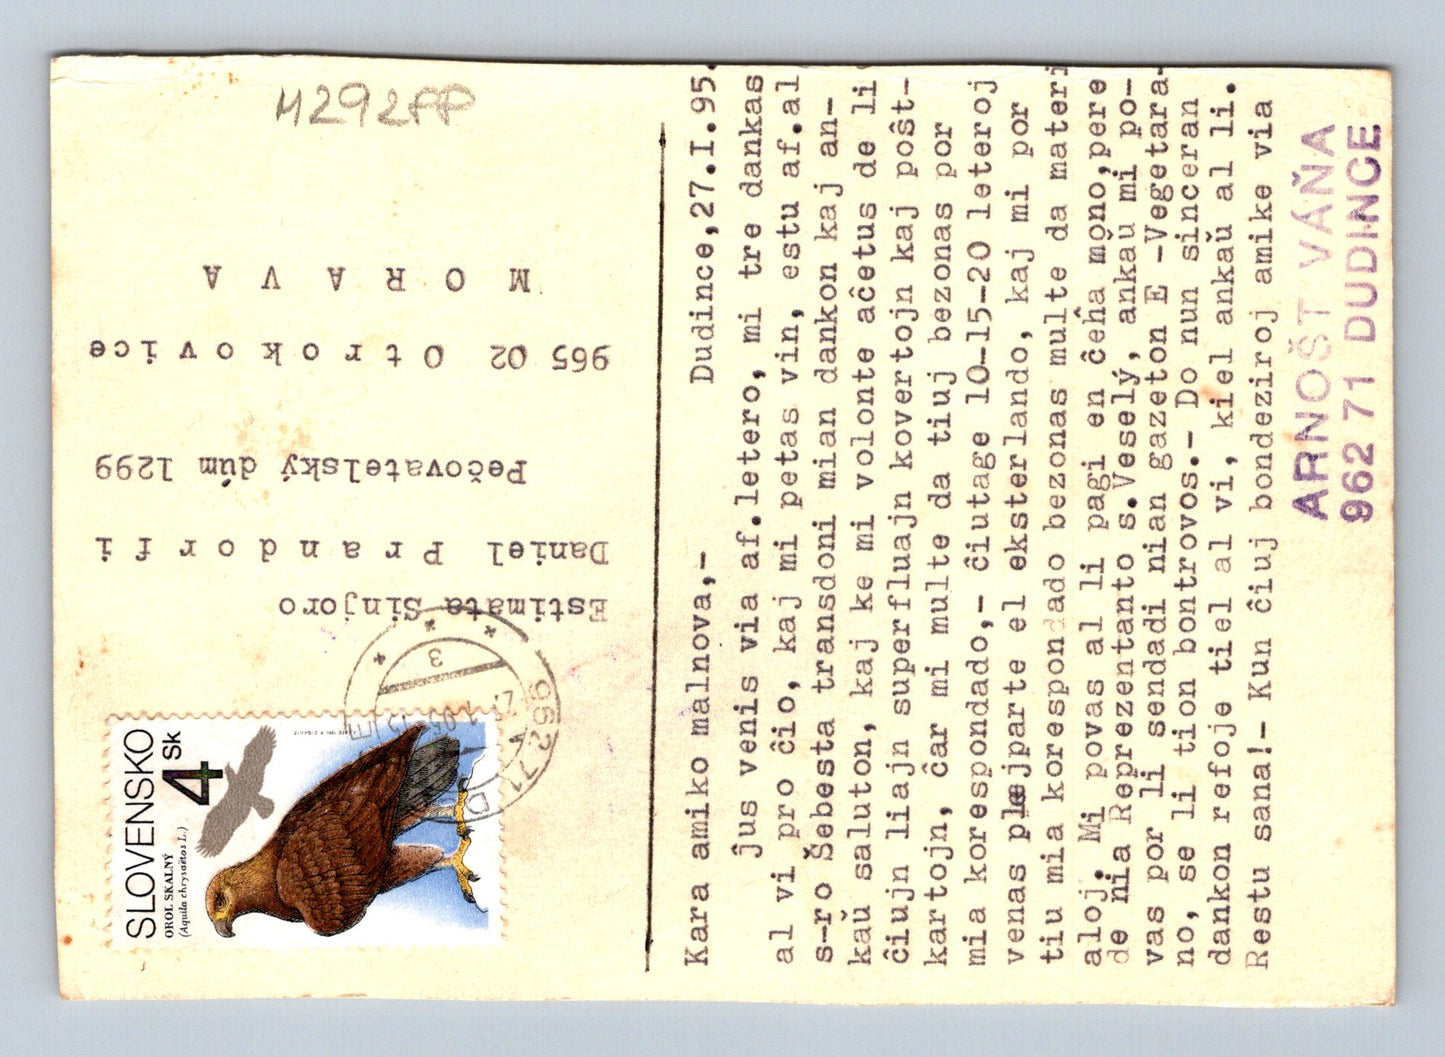 M292PP
Estimata Sinjoro
Daniel Prandorfi
Pečovatelský dům 1299
965 02 Otrokovice
MORAVA
SLOVENSKO
4 Sk
OROL SKALNÝ
(Aquila chrysaëtos L.)
962 71 D
3
Dudince,27.I.95.
Kara amiko malnova,-
ĵus venis via af.letero, mi tre dankas
al vi pro ĉio, kaj mi petas vin, estu af.al
s-ro Šebesta transdoni mian dankon kaj an-
kaŭ saluton, kaj ke mi volonte aĉetus de li
ĉiujn liajn superfluajn kovertojn kaj poŝt-
kartojn, ĉar mi multe da tiuj bezonas por
mia korespondado,- ĉiutage 10-15-20 leteroj
venas plejparte el eksterlando, kaj mi por
tiu mia korespondado bezonas multe da materi
aloj. Mi povas al li pagi en ĉeĥa mono,pere
de nia Reprezentanto s.Veselý, ankaŭ mi po-
vas por li sendadi nian gazeton E -Vegetara-
no, se li tion bontrovos.- Do nun sinceran
dankon refoje tiel al vi, kiel ankaŭ al li.
Restu sana!- Kun ĉiuj bondeziroj amike via
ARNOŠT VÁŇA
962 71 DUDINCE